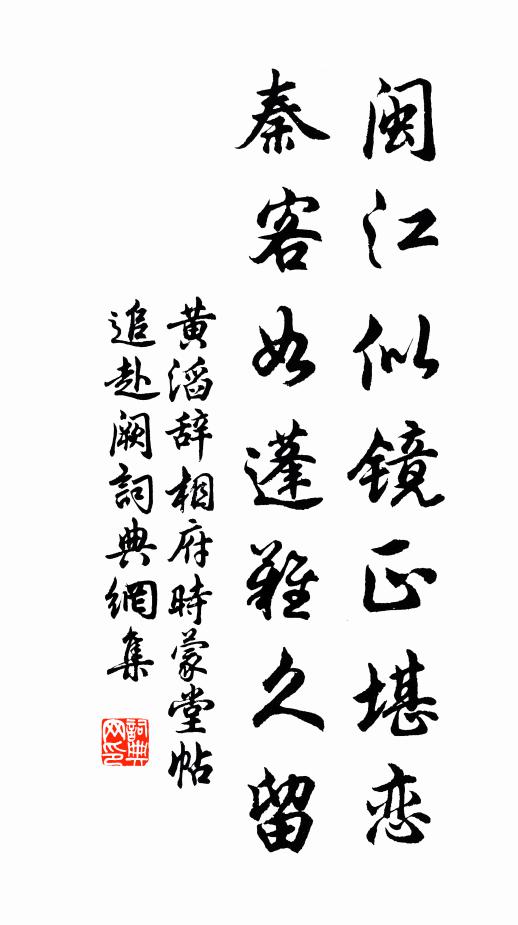 闽江似镜正堪恋
秦客如蓬难久留
黄滔辞相府時蒙堂帖
追赴阙詞典網集
詞典网印